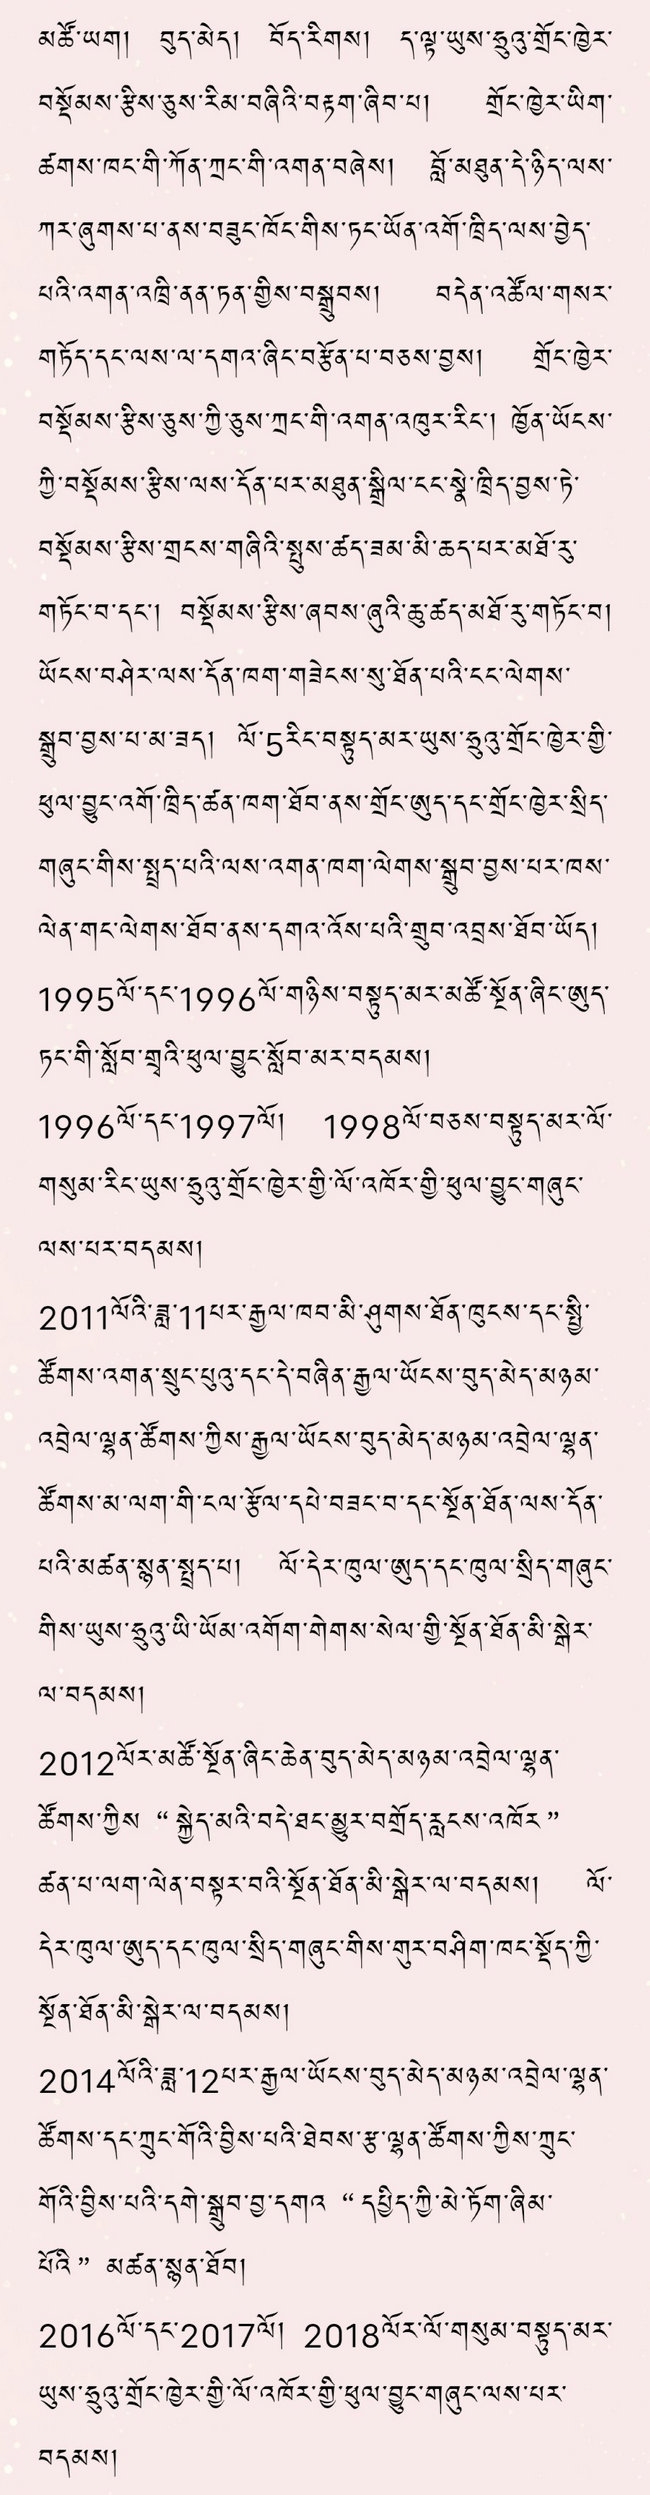 མཚོ་ཡག། བུད་མེད། བོད་རིགས། ད་ལྟ་ཡུས་ཧྲུའུ་གྲོང་ཁྱེར་
བསྡོམས་རྩིས་ཅུས་རིམ་བཞིའི་བརྟག་ཞིབ་པ། གྲོང་ཁྱེར་ཡིག་
ཚགས་ཁང་གི་ཀོན་ཀྲང་གི་འགན་བཞེས། བློ་མཐུན་དེ་ཉིད་ལས་
ཀར་ཞུགས་པ་ནས་བཟུང་ཁོང་གིས་ཏང་ཡོན་འགོ་ཁྲིད་ལས་བྱེད་
པའི་འགན་འཁྲི་ནན་ཏན་གྱིས་བསྒྲུབས། བདེན་འཚོལ་གསར་
གཏོད་དང་ལས་ལ་དགའ་ཞིང་བརྩོན་པ་བཅས་བྱས། གྲོང་ཁྱེར་
བསྡོམས་རྩིས་ཅུས་ཀྱི་ཅུས་ཀྲང་གི་འགན་འཁུར་རིང་། ཁྱོན་ཡོངས་
ཀྱི་བསྡོམས་རྩིས་ལས་དོན་པར་མཐུན་སྒྲིལ་ངང་སྣེ་ཁྲིད་བྱས་ཏེ་
བསྡོམས་རྩིས་གྲངས་གཞིའི་སྤུས་ཚད་ཟམ་མི་ཆད་པར་མཐོ་རུ་
གཏོང་བ་དང་། བསྡོམས་རྩིས་ཞབས་ཞུའི་ཆུ་ཚད་མཐོ་རུ་གཏོང་བ།
ཡོངས་བཤེར་ལས་དོན་ཁག་གཟེངས་སུ་ཐོན་པའི་ངང་ལེགས་
སྒྲུབ་བྱས་པ་མ་ཟད། ལོ་5རིང་བསྟུད་མར་ཡུས་ཧྲུའུ་གྲོང་ཁྱེར་གྱི་
ཕུལ་བྱུང་འགོ་ཁྲིད་ཚན་ཁག་ཐོབ་ནས་གྲོང་ཨུད་དང་གྲོང་ཁྱེར་སྲིད་
གཞུང་གིས་སྤྲད་པའི་ལས་འགན་ཁག་ལེགས་སྒྲུབ་བྱས་པར་ཁས་
ལེན་གང་ལེགས་ཐོབ་ནས་དགའ་འོས་པའི་གྲུབ་འབྲས་ཐོབ་ཡོད།
1995ལོ་དང་1996ལོ་གཉིས་བསྟུད་མར་མཚོ་སྔོན་ཞིང་ཨུད་
ཏང་གི་སློབ་གྲྭའི་ཕུལ་བྱུང་སློབ་མར་བདམས།
1996ལོ་དང་1997ལོ། 1998ལོ་བཅས་བསྟུད་མར་ལོ་
གསུམ་རིང་ཡུས་ཧྲུའུ་གྲོང་ཁྱེར་གྱི་ལོ་འཁོར་གྱི་ཕུལ་བྱུང་གཞུང་
ལས་པར་བདམས།
2011ལོའི་ཟླ་11པར་རྒྱལ་ཁབ་མི་ཤུགས་ཐོན་ཁུངས་དང་སྤྱི་
ཚོགས་འགན་སྲུང་པུའུ་དང་དེ་བཞིན་རྒྱལ་ཡོངས་བུད་མེད་མཉམ་
འབྲེལ་ལྷན་ཚོགས་ཀྱིས་རྒྱལ་ཡོངས་བུད་མེད་མཉམ་འབྲེལ་ལྷན་
ཚོགས་མ་ལག་གི་ངལ་རྩོལ་དཔེ་བཟང་བ་དང་སྔོན་ཐོན་ལས་དོན་
པའི་མཚན་སྙན་སྤྲད་པ། ལོ་དེར་ཁུལ་ཨུད་དང་ཁུལ་སྲིད་གཞུང་
གིས་ཡུས་ཧྲུའུ་ཡི་ཡོམ་འགོག་གེགས་སེལ་གྱི་སྔོན་ཐོན་མི་སྒེར་
ལ་བདམས།
2012ལོར་མཚོ་སྔོན་ཞིང་ཆེན་བུད་མེད་མཉམ་འབྲེལ་ལྷན་
ཚོགས་ཀྱིས “ སྐྱེད་མའི་བདེ་ཐང་མྱུར་བགྲོད་རླངས་འཁོར ”
ཚན་པ་ལག་ལེན་བསྟར་བའི་སྔོན་ཐོན་མི་སྒེར་ལ་བདམས། ལོ་
དེར་ཁུལ་ཨུད་དང་ཁུལ་སྲིད་གཞུང་གིས་གུར་བཤིག་ཁང་སྡོད་ཀྱི་
སྔོན་ཐོན་མི་སྒེར་ལ་བདམས།
2014ལོའི་ཟླ་12པར་རྒྱལ་ཡོངས་བུད་མེད་མཉམ་འབྲེལ་ལྷན་
ཚོགས་དང་ཀྲུང་གོའི་བྱིས་པའི་ཐེབས་རྩ་ལྷན་ཚོགས་ཀྱིས་ཀྲུང་
གོའི་བྱིས་པའི་དགེ་སྒྲུབ་བྱ་དགའ “ དཔྱིད་ཀྱི་མེ་ཏོག་ཞིམ་
པོའི ” མཚན་སྙན་ཐོབ།
2016ལོ་དང་2017ལོ། 2018ལོར་ལོ་གསུམ་བསྟུད་མར་
ཡུས་ཧྲུའུ་གྲོང་ཁྱེར་གྱི་ལོ་འཁོར་གྱི་ཕུལ་བྱུང་གཞུང་ལས་པར་
བདམས།